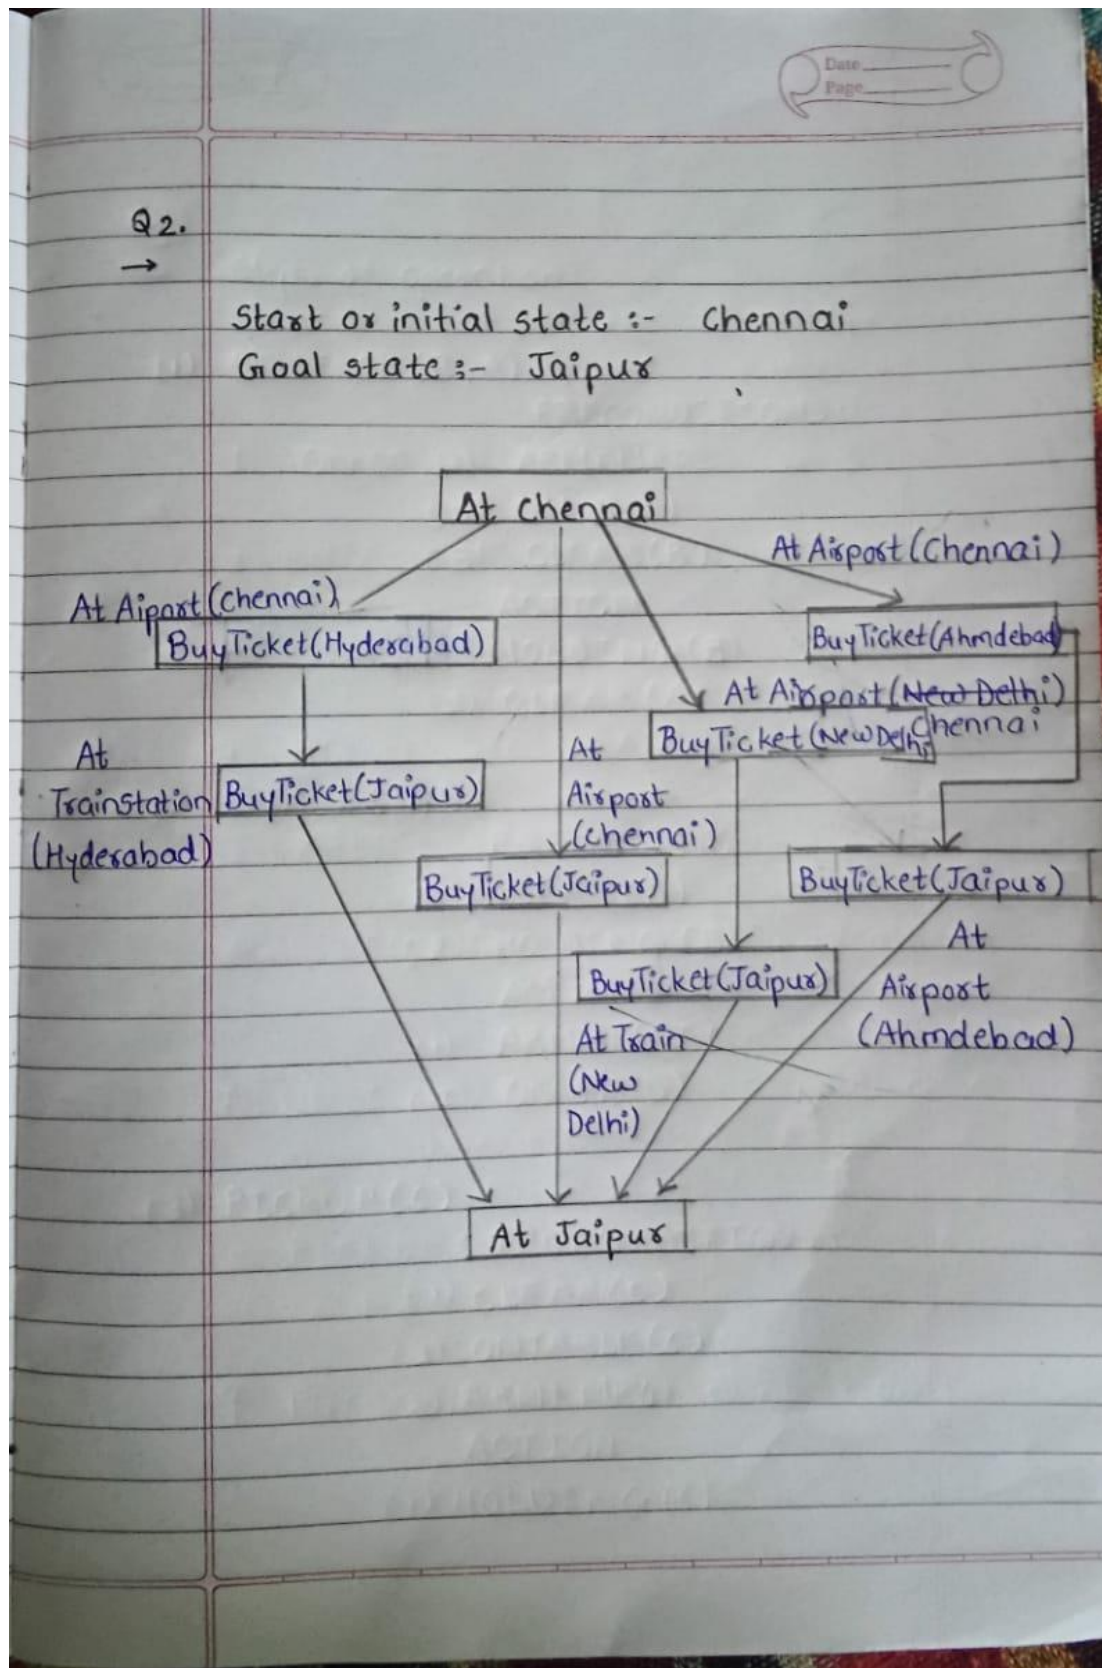 Date
Page
Q2.
→
Start or initial state :- Chennai
Goal state :- Jaipur
At Chennai
At Airport (Chennai)
At Aiport (Chennai)
BuyTicket(Hyderabad)
BuyTicket(Ahmdebad)
At Airport (New Delhi)
Chennai
BuyTicket (New Delhi)
At
Trainstation
(Hyderabad)
BuyTicket(Jaipur)
At
Airport
(Chennai)
BuyTicket(Jaipur)
BuyTicket(Jaipur)
At
Airport
(Ahmdebad)
BuyTicket(Jaipur)
At Train
(New
Delhi)
At Jaipur